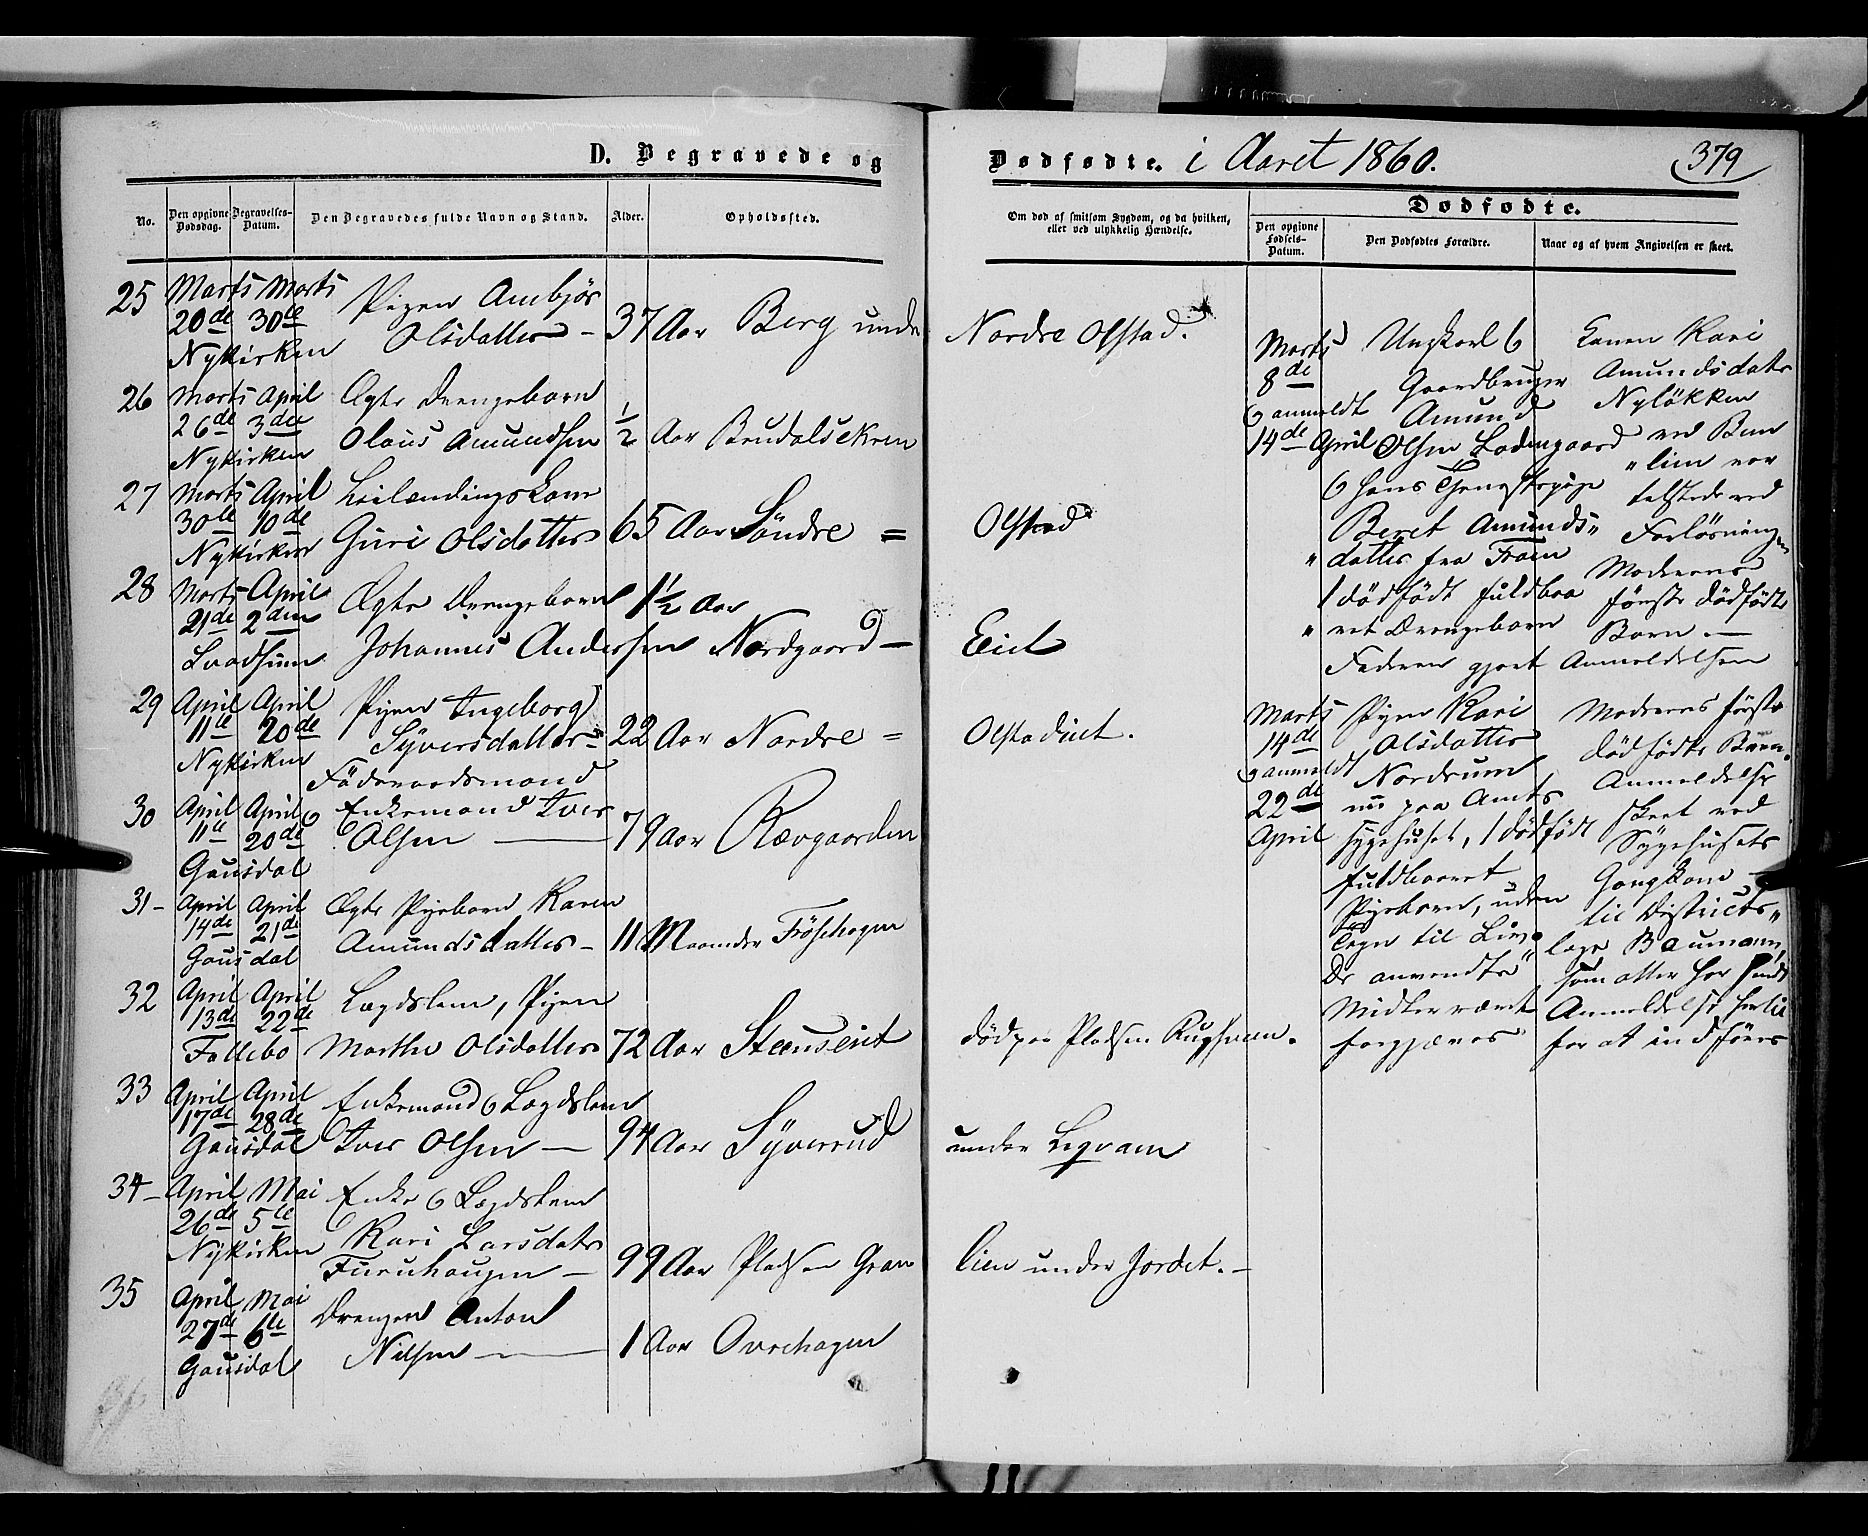 D. Begravede og
No.
Den opgivne Dødsdag.
Begravelses-Datum.
Den Begravedes fulde Navn og Stand.
Alder.
Opholdssted.
25 Marts 20de Marts 30te Nykirken Pigen Ambjør Olsdatter – 37 Aar Berg under
26 Marts 26de April 3die Nykirken Ægte Drengebarn Olaus Amundsen ½ Aar Brudalsekren
27 Marts 30te April 10de Nykirken Leilændingskone Guri Olsdatter 65 Aar Søndre =
28 Marts 21de April 2den Svadsum Ægte Drengebarn Johannes Andersen 1½ Aar Nordgaard –
29 April 11te April 20de Nykirken Pigen Ingeborg Syversdatter – 22 Aar Nordre =
30 April 11te April 20de Gausdal Føderaadsmand & Enkemand Iver Olsen — 79 Aar Rævgaarden
31 – April 14de April 21de Gausdal Ægte Pigebarn Karen Amundsdatter – 11 Maaneder Frøsehagen
32 April 13de April 22de Follebo Lægdslem, Pigen Marthe Olsdatter 72 Aar Steenseiet
33 April 17de April 28de Gausdal Enkemand & Lægdslem Iver Olsen — 94 Aar Syverrud
34 – April 26de Mai 5te Nykirken Enke & Lægdslem Kari Larsdatr Furuhaugen – 99 Aar Pladsen Gran
35 April 27de Mai 6te Gausdal Drengen Anton Nilsen — 1 Aar Ovrehagen
Dødfødte. i Aaret 1860.
379
Om død af smitsom Sygdom, og da hvilken,
eller ved ulykkelig Hændelse.
Dødfødte.
Den opgivne Fødsels-Datum.
Den Dødfødtes Forældre.
Naar og af hvem Angivelsen er skeet.
Nordre Olstad.
Olstad
Eiet
Olstadeiet.
død paa Pladsen
under Legram
lien under Jordet. –
Marts
8de
& anmeldt
14de April
Ungkarl &
Gaardbruger
Amund
Olsen Ladengaard
& hans Tjenestepige
Beret Amunds„
„datter fra Fraen
1 dødfødt fuldbaa
„ret Drengebarn
Faderen gjort Anmeldelsen
Konen Kari
Amundsdatr
Nyløkken
ved
„lien var
tilstede ved
Forløsningen
Moderens
første dødfødte
Barn —
Marts
14de
& anmeldt
22de
April
Pigen Kari
Olsdatter
Nordrum
nu paa Amts
sygehuset, 1 dødfødt
fuldbaaret
Pigebarn, uden
Tegn til Liv.
De anvendte
Midler været
forgjæves
Moderens første
dødfødte Barn.
Anmeldelse
skeet ved
Sygehusets
Gangkone
til Districts„
læge Baumann,
som atter har sendt
Anmeldelse hertil
for at indføres